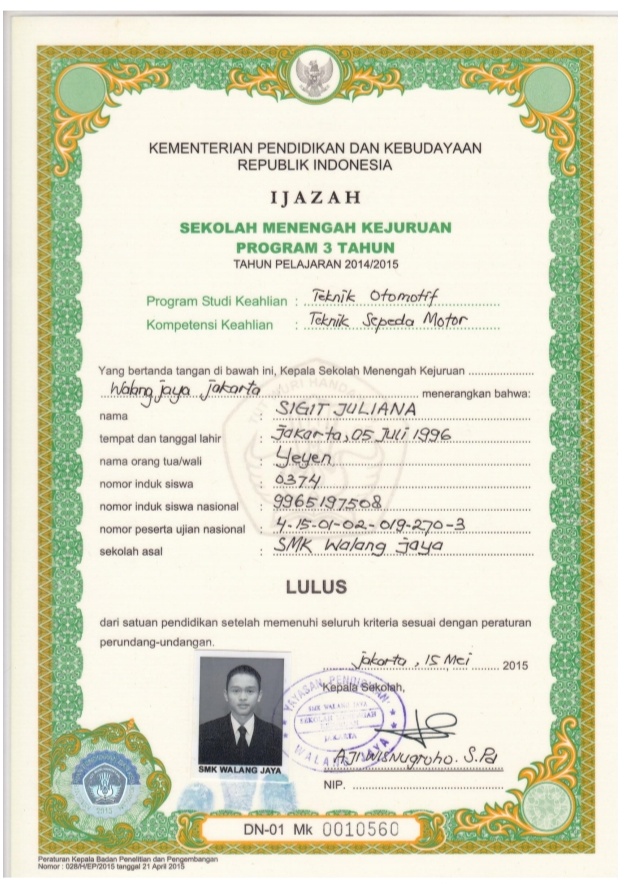 KEMENTERIAN PENDIDIKAN DAN KEBUDAYAAN
REPUBLIK INDONESIA
IJAZAH
SEKOLAH MENENGAH KEJURUAN
PROGRAM 3 TAHUN
TAHUN PELAJARAN 2014/2015
Program Studi Keahlian : Teknik Otomotif
Kompetensi Keahlian : Teknik Sepeda Motor
Yang bertanda tangan di bawah ini, Kepala Sekolah Menengah Kejuruan
Walang jaya jakarta menerangkan bahwa:
nama : SIGIT JULIANA
tempat dan tanggal lahir : Jakarta, 05 Juli 1996
nama orang tua/wali : Yeyen
nomor induk siswa : 0374
nomor induk siswa nasional : 9965197508
nomor peserta ujian nasional : 4-15-01-02-019-270-3
sekolah asal : SMK Walang jaya
LULUS
dari satuan pendidikan setelah memenuhi seluruh kriteria sesuai dengan peraturan
perundang-undangan.
jakarta, 15 Mei 2015
Kepala Sekolah,
YAYASAN PENDIDIKAN
SMK WALANG JAYA
JAKARTA
WALANG JAYA
AJI WISNugroho. S.Pd
NIP.
SMK WALANG JAYA
2015
DN-01 Mk 0010560
Peraturan Kepala Badan Penelitian dan Pengembangan
Nomor : 028/H/EP/2015 tanggal 21 April 2015